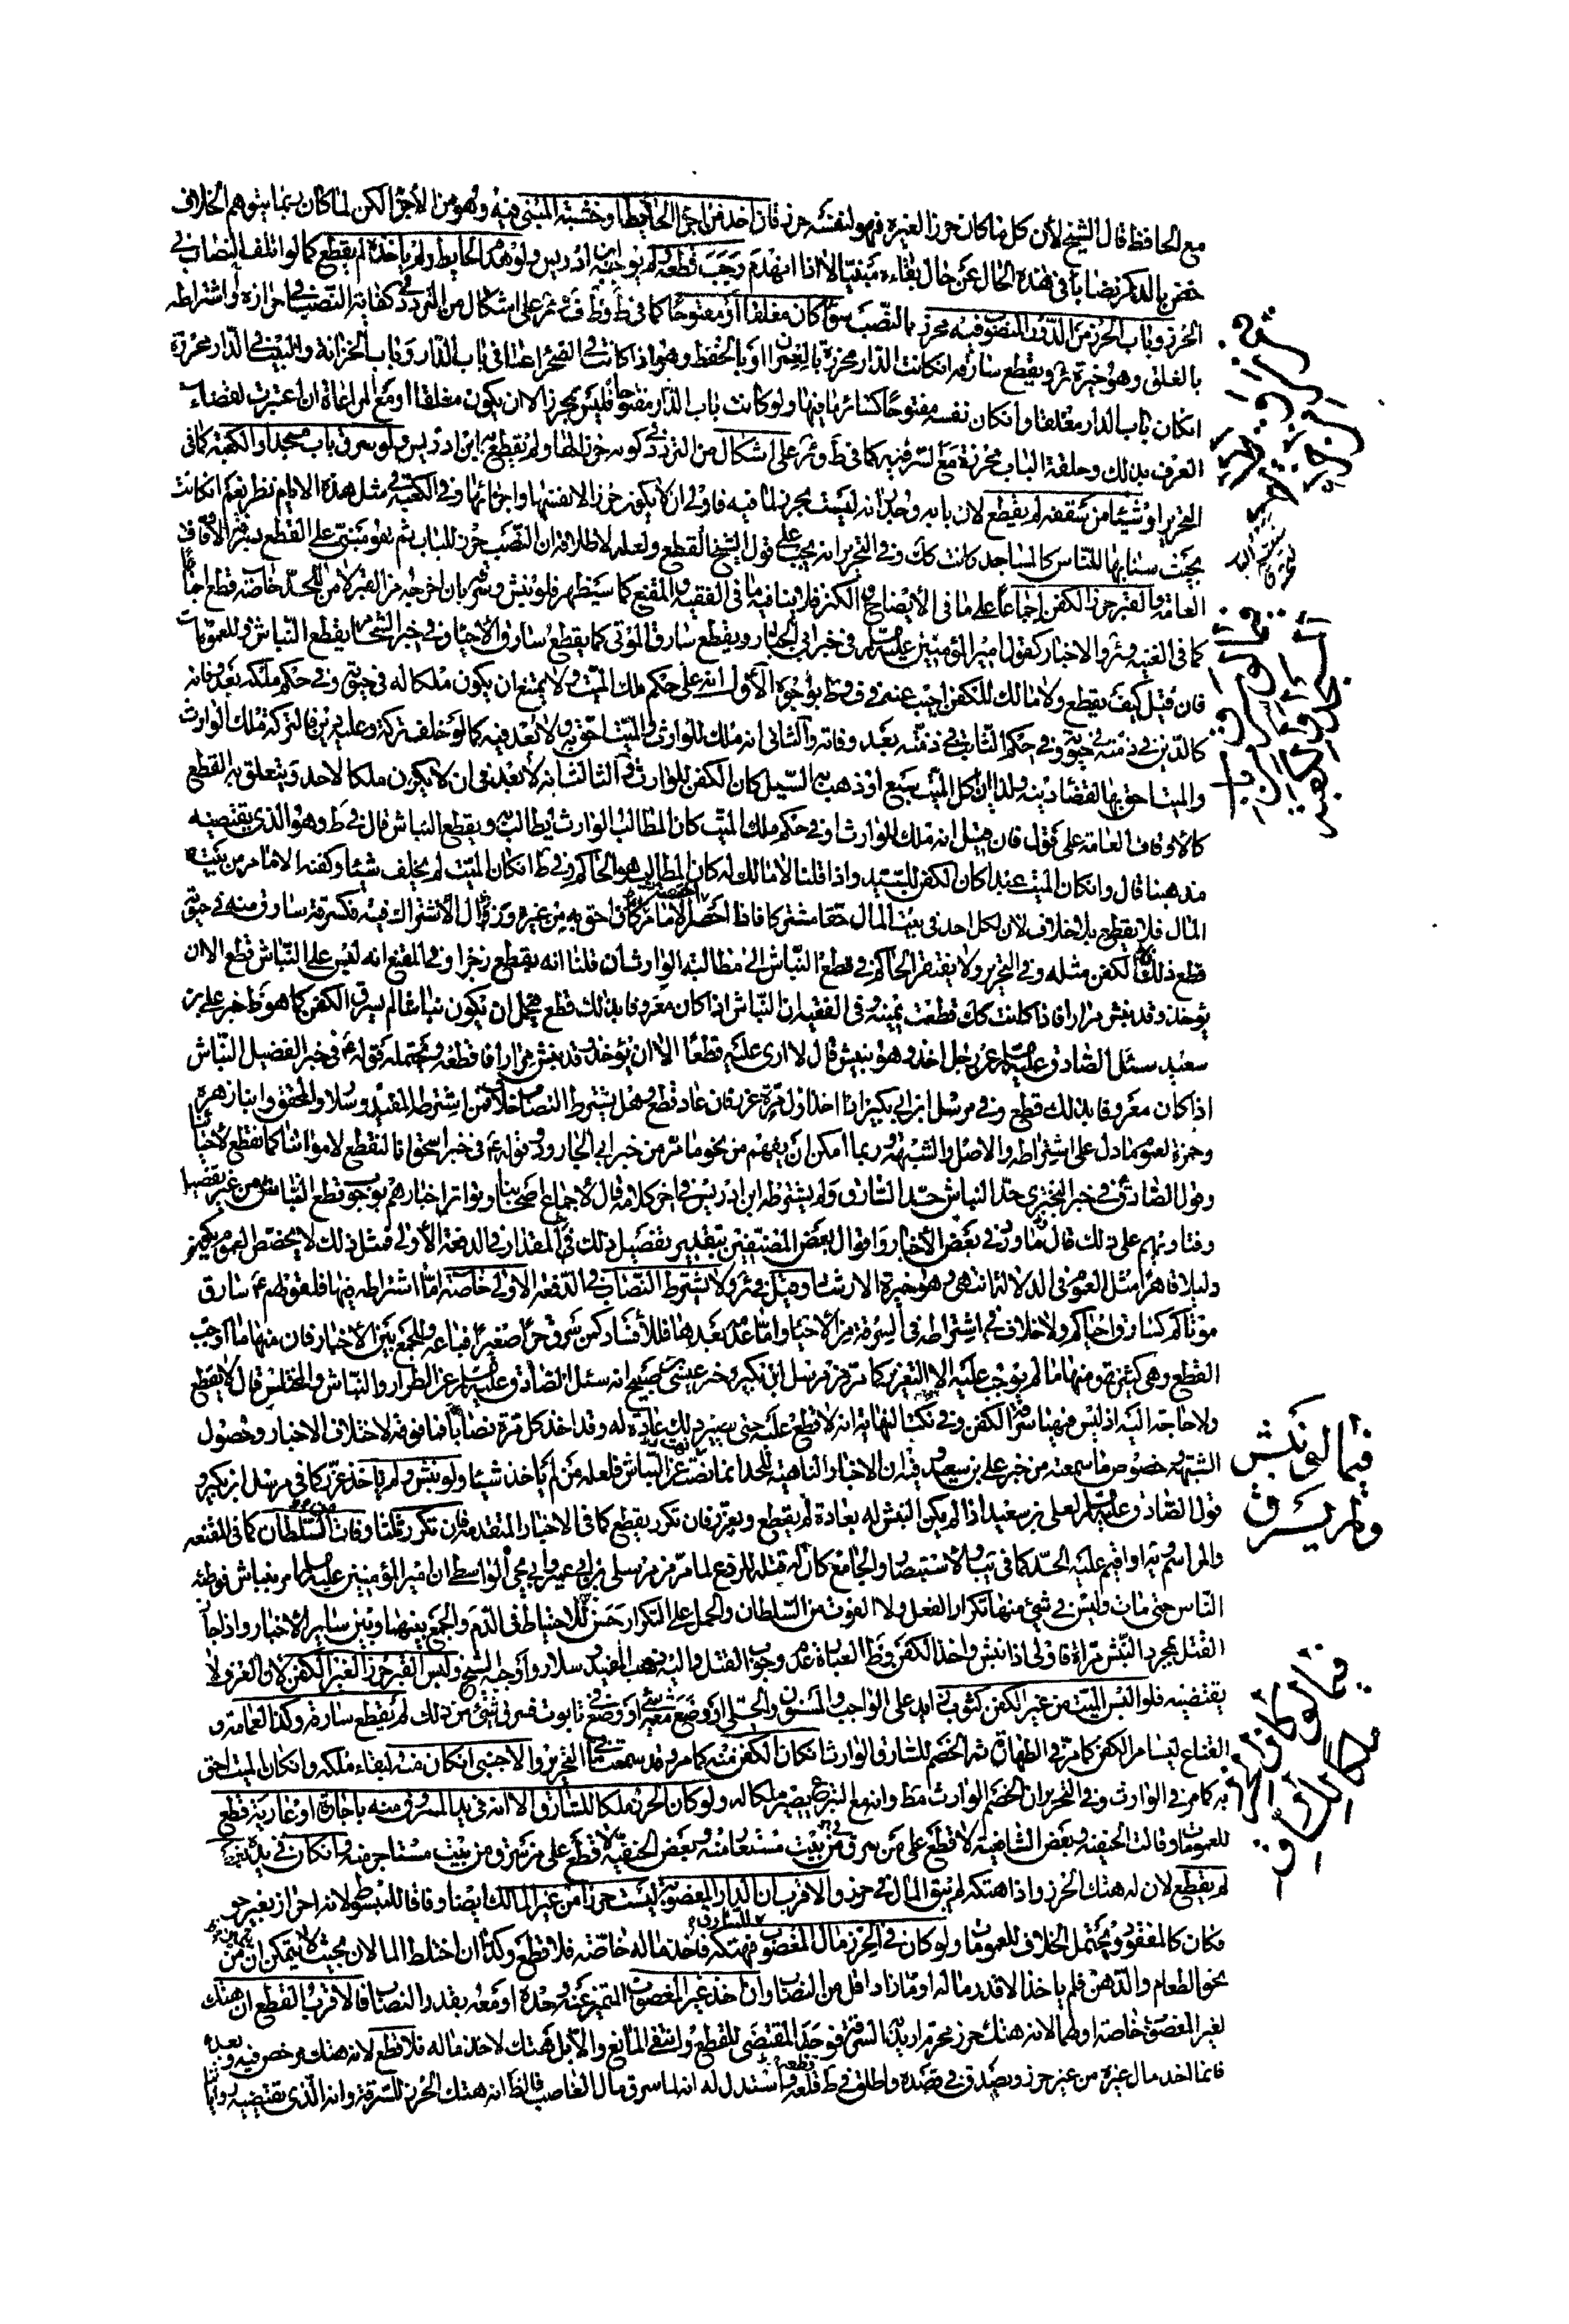 مع الحافظ قال الشيخ لأن كل ما كان حرزا لغيره فهو لنفسه حرز فان اخذ من اجزاء الحائط او خشبته المبنى فيه وهو من الأجزاء لكن لما كان ربما يتوهم الخلاف
خص بالذكر نصابا في هذه الحال عن حال بقاءه مبنيا لا اذا انهدم وجب قطعه ولم يوجبه ابن ادريس ولو هدم الحايط ولم ياخذه لم يقطع كما لو اتلف النصاب في
الحرز وباب الحرز من الدور المنصوب فيه محرز بالنصب سواء كان مغلقا او مفتوحا كما في ط وفت ئر على اشكال من التردد في كفاية النصب في احرازه واشتراطه
بالغلق وهو خيرة ئر ويقطع سارقه ان كانت الدار محرزة بالعمران او بالحفظ وهو اذا كانت في الصحراء اما في باب الدار وباب الخزانة والبيت في الدار محرزة
ان كان باب الدار مغلقا وان كان نفسه مفتوحا كسائر ما فيها ولو كانت باب الدار مفتوحا فليس بمحرز الا ان يكون مغلقا او مع المراعاة ان اعتبرت لقضاء
العرف بذلك وحلقة الباب محرزة مع السمر فيه كما في ط وئر على اشكال من التردد في كونه حرزا لها ولم يقطع به ابن ادريس ولو سرق باب مسجد او الكعبة كما في
التحرير او شيئا من سقفه لم يقطع لان بابه وجدرانه ليست بحرز لما فيه فاولى ان لا يكون حرزا لانفسها واجزائها وفي الكعبة في مثل هذه الايام نظر نعم ان كانت
بحيث سد بابها للناس كالمساجد كانت كك وفي التحرير انه يجب على قول الشيخ القطع ولعله لاطلاقه ان النصب حرز للباب ثم هو مبني على القطع بسرقة الاوقاف
العامة والقبر حرز الكفن اجماعا على ما في الايضاح والكنز فلا ينافيه ما في الفقيه والمقنع كما سيظهر فلو نبش وسرق بان اخرجه من القبر لا من اللحد خاصة قطع اجماعا
كما في الغنية وئر والاخبار كقول امير المؤمنين عليه السلم في خبر ابي الجارود يقطع سارق الموتى كما يقطع سارق الأحياء وفي خبر اسحق يقطع النباش وللعمومات
فان قيل كيف يقطع ولا مالك للكفن اجيب عنه في ف وط بوجوه الأول انه على حكم ملك الميت ولا يمتنع ان يكون ملكا له في حيوته وفي حكم ملكه بعد وفاته
كالدين في ذمته في حيوته وفي حكم الثابت في ذمته بعد وفاته والثاني انه ملك للوارث والميت احق به ولا بعد فيه كما لو خلف تركة وعليه دين فالتركة ملك الوارث
والميت احق بها لقضاء دينه ولذا ان اكل الميت سبع او ذهب به السيل كان الكفن للوارث والثالث انه لا بعد في ان لا يكون ملكا لاحد ويتعلق به القطع
كالأوقاف العامة على قول فان قيل انه ملك للوارث او في حكم ملك الميت كان المطالب الوارث يطالب به ويقطع النباش قال في ط وهو الذي يقتضيه
مذهبنا قال وان كان الميت عبدا كان الكفن للسيد واذا قلنا لا مالك له كان المطالب هو الحاكم وفي ط ان كان الميت لم يخلف شيئا وكفنه الامام من بيت
المال فلا يقطع بلا خلاف لان لكل احد في بيت المال حقا مشتركا فاذا حصر الامام كان احق به من غيره وزال الاشتراك فيه فكسرقة سارق منه في حيوته
قطع كذلك الكفن مثله وفي التحرير ولا يفتقر الحاكم في قطع النباش الى مطالبة الوارث ان قلنا انه يقطع زجرا وفي المقنع انه ليس على النباش قطع الا ان
يؤخذ وقد نبش مرارا فاذا كانت كك قطعت يمينه وفي الفقيه ان النباش اذا كان معروفا بذلك قطع فيحمل ان يكون نباشا لم يسرق الكفن كما هو ظ خبر علي بن
سعيد سئل الصادق عليه السلم عن رجل اخذ وهو ينبش قال لا ارى عليه قطعا الا ان يؤخذ وقد نبش مرارا فاقطعه ويحتمله قوله ع في خبر الفضيل النباش
اذا كان معروفا بذلك قطع وفي مرسل ابن ابي بكير اذا اخذ اول مرة عزر فان عاد قطع وهل يشترط النصاب خلاف فمن اشترطه المفيد وسلار والمحقق وابنا زهرة
وحمزة لعموم ما دل على اشتراطه والاصل والشبهة وربما امكن ان يفهم من نحو ما مر من خبر ابي الجارود وقوله ع في خبر اسحق انا لنقطع لامواتنا كما نقطع لأحيائنا
وقول الصادق ع في خبر البختري حد النباش حد السارق ولم يشترطه ابن ادريس في اخر كلامه قال لاجماع اصحابنا وتواتر اخبارهم بوجوب قطع النباش من غير تفصيل
وفتاويهم على ذلك قال وما ورد في بعض الأخبار واقوال بعض المصنفين بتقييد وتفصيل ذلك في المقدار في الدفعة الأولى فمثل ذلك لا يخصص العموم
دليلا قاهرا مثل العموم في الدلالة انتهى وهو خيرة الارشاد وقيل في ئر ولا يشترط النصاب في الدفعة الاولى خاصة اما اشتراطه فيها فلقولهم ع سارق
موتاكم كسارق احياكم ولا خلاف في اشتراطه في السرقة من الاحياء واما عدمه بعدها فللافساد كمن سرق حرا صغيرا فباعه وللجمع بين الأخبار فان منها ما اوجب
القطع وهي كثيرة ومنها ما لم يوجب عليه الا التعزير كما مر من مرسل ابن بكير وخبر عيسى بن صبيح انه سئل الصادق عليه السلم عن الطرار والنباش والمختلس قال لا يقطع
ولا حاجة اليه اذ ليس فيهما سرقة الكفن وفي نكت النهاية انه لا قطع عليه حتى يصير ذلك عادة له وقد اخذ كل مرة نصابا فما فوقه لاختلاف الاخبار وحصول
الشبهة وخصوص ما سمعته من خبر علي بن سعيد وفيه ان الاخبار الناهية للحد انما نصت عن النباش فلعله من لم ياخذ شيئا ولو نبش ولم ياخذ عزر كما في مرسل ابن بكير و
قول الصادق عليه السلم لعلي بن سعيد اذا لم يكن النبش له بعادة لم يقطع ويعزر فان تكرر يقطع كما في الاخبار المتقدمة فان تكرر قلنا وفات السلطان كما في المقنعة
والمراسم ويه او اقيم عليه الحد كما في يب والاستبصار والجامع كان له قتله للردع لما مر من مرسلي ابن ابي عمير وابي يحيى الواسطي ان امير المؤمنين عليه السلم امر بنباش فوطئه
الناس حتى مات وليس في شئ منهما تكرار الفعل ولا الفوت من السلطان والحمل على التكرار حسن للاحتياط في الدم والجمع بينهما وبين ساير الاخبار واذا جاز
القتل بمجرد النبش مرارا فاولى اذا نبش واخذ الكفن وظ العبارة عدم وجوب القتل واليه ذهب المفيد وسلار واوجبه الشيخ وليس القبر حرزا لغير الكفن لان العرف لا
يقتضيه فلو البس الميت من غير الكفن كثوب زايد على الواجب والمسنون والحلى او وضع معه شئ او وضع في تابوت فسرق شئ من ذلك لم يقطع سارقه وكذا العمامة و
القناع ليسا من الكفن كما مر في الطهارة ثم الخصم للسارق الوارث ان كان الكفن منه كما مر وقد سمعت ما في التحرير والاجنبي ان كان منه لبقاء ملكه وان كان الميت احق
به كما مر في الوارث وفي التحرير ان الخصم الوارث مط وانه مع التبرع يصير ملكا له ولو كان الحرز ملكا للسارق الا انه في يد المسروق منه باجارة او عارية قطع
للعمومات وقالت الحنيفية وبعض الشافعية لا قطع على من سرق من بيت مستعار منه وبعض الحنفية لا قطع على من سرق من بيت مستاجر منه وان كان في يده بغصب
لم يقطع لان له هتك الحرز واذا هتكه لم يبق المال في حرز والاقرب ان الدار المغصوبة ليست حرزا من غير المالك ايضا وفاقا للمبسوط لانه احراز بغير حق
فكان كالمفقود ويحتمل الخلاف للعمومات ولو كان في الحرز مال المغصوب للسارق فهتكه فاخذ ماله خاصة فلا قطع وكذا ان اختلط المالان بحيث لا يتمكن
نحو الطعام والدهن فلم ياخذ الا قدر ماله او ما زاد اقل من النصاب وان اخذ غير المغصوب المتميز عنه وحده او معه بقدر النصاب فالاقرب القطع ان هتك
لغير المغصوب خاصة او لهما لانه هتك حرز محرم اريد به السرقة فوجد المقتضى للقطع وانتفى المانع والا بل هتك لاخذ ماله فلا قطع لانه هتك مرخص فيه وبعده
فانما اخذ مال غيره من غير حرز ويصدق في قصده واطلق في ط قطعه واستدل له انه لما سرق مال الغاصب فالظ انه هتك الحرز للسرقة وانه الذي يقتضيه رواياتنا
فيما لو نبش
ولم يسرق
فيما لو كان الحرز
ملكا للسارق